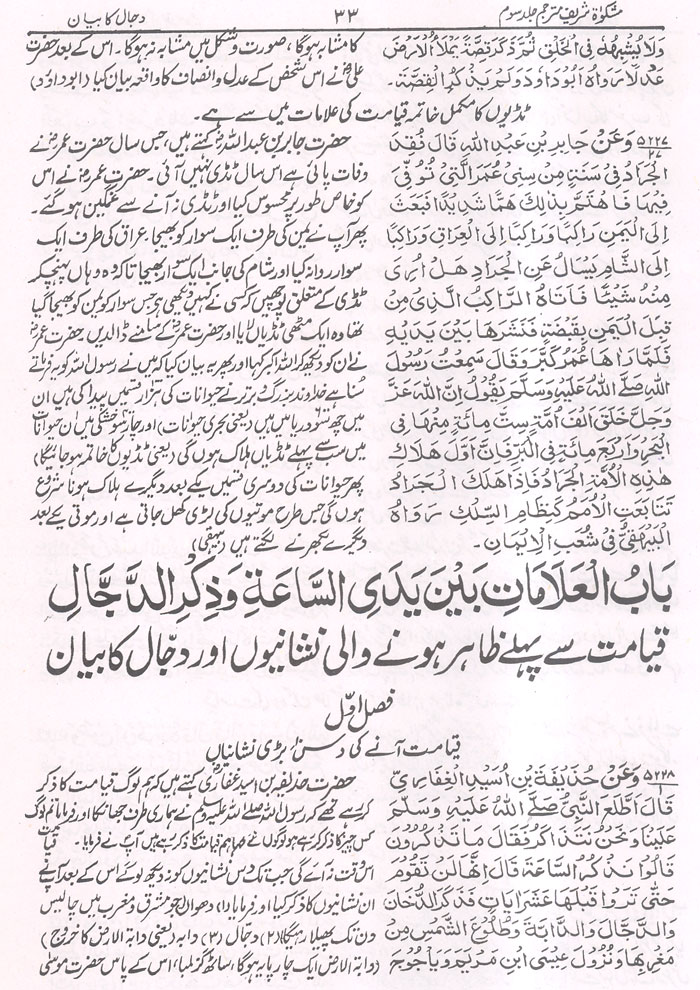 مشکوٰۃ شریف مترجم جلد سوم
۳۳
دجال کا بیان
وَلَا يُشْبِهُهٗ فِي الْخَلْقِ ثُمَّ ذَكَرَ قِصَّةً يَمْلَأُ الْاَرْضَ
عَدْلًا رَوَاهُ اَبُوْدَاوُدَ وَلَمْ يَذْكُرِ الْقِصَّةَ۔
کا مشابہ ہوگا، صورت و شکل میں مشابہ نہ ہوگا۔ اس کے بعد حضرت
علیؓ نے اس شخص کے عدل و انصاف کا واقعہ بیان کیا (ابوداؤد)
ٹڈیوں کا مکمل خاتمہ قیامت کی علامات میں سے ہے۔
۵۲۲۷ وَعَنْ جَابِرِ بْنِ عَبْدِ اللّٰهِ قَالَ فُقِدَ
الْجَرَادُ فِيْ سَنَةٍ مِنْ سِنِيْ عُمَرَ الَّتِيْ تُوُفِّيَ
فِيْهَا فَاهْتَمَّ بِذٰلِكَ هَمًّا شَدِيْدًا فَبَعَثَ
اِلَى الْيَمَنِ رَاكِبًا وَرَاكِبًا اِلَى الْعِرَاقِ وَرَاكِبًا
اِلَى الشَّامِ يَسْأَلُ عَنِ الْجَرَادِ هَلْ اُرِيَ
مِنْهُ شَيْئًا فَاَتَاهُ الرَّاكِبُ الَّذِيْ مِنْ
قِبَلِ الْيَمَنِ بِقَبْضَةٍ فَنَثَرَهَا بَيْنَ يَدَيْهِ
فَلَمَّا رَاٰهَا عُمَرُ كَبَّرَ وَقَالَ سَمِعْتُ رَسُوْلَ
اللّٰهِ صَلَّى اللّٰهُ عَلَيْهِ وَسَلَّمَ يَقُوْلُ اِنَّ اللّٰهَ عَزَّ
وَجَلَّ خَلَقَ اَلْفَ اُمَّةٍ سِتُّ مِائَةٍ مِنْهَا فِي
الْبَحْرِ وَاَرْبَعُ مِائَةٍ فِي الْبَرِّ فَاِنَّ اَوَّلَ هَلَاكِ
هٰذِهِ الْاُمَّةِ الْجَرَادُ فَاِذَا هَلَكَ الْجَرَادُ
تَتَابَعَتِ الْاُمَمُ كَنِظَامِ السِّلْكِ رَوَاهُ
الْبَيْهَقِيُّ فِيْ شُعَبِ الْاِيْمَانِ۔
حضرت جابر بن عبداللہؓ کہتے ہیں، جس سال حضرت عمرؓ نے
وفات پائی ہے اس سال ٹڈی نہیں آئی۔ حضرت عمرؓ نے اس
کو خاص طور پر محسوس کیا اور ٹڈی نہ آنے سے غمگین ہو گئے۔
پھر آپ نے یمن کی طرف ایک سوار کو بھیجا، عراق کی طرف ایک
سوار روانہ کیا اور شام کی جانب ایک سوار بھیجا تاکہ وہ وہاں پہنچکر
ٹڈی کے متعلق پوچھیں کہ کسی نے کہیں دیکھی ہے جس سوار کو یمن کو بھیجا گیا
تھا وہ ایک مٹھی ٹڈیاں لایا اور حضرت عمرؓ کے سامنے ڈالدیں۔ حضرت عمرؓ
نے ان کو دیکھ کر اللہ اکبر کہا اور پھر یہ بیان کیا کہ میں نے رسول اللہ کو یہ فرماتے
سنا ہے خداوند بزرگ و برتر نے حیوانات کی ہزار قسمیں پیدا کی ہیں ان
میں چھ سو دریا میں ہیں (یعنی بحری حیوانات) اور چار سو خشکی میں ان حیوانات
میں سب سے پہلے ٹڈیاں ہلاک ہوں گی (یعنی ٹڈیوں کا خاتمہ ہو جائیگا)
پھر حیوانات کی دوسری قسمیں یکے بعد دیگرے ہلاک ہونا شروع
ہوں گی جس طرح موتیوں کی لڑی کھل جاتی ہے اور موتی یکے بعد
دیگرے بکھرنے لگتے ہیں (بیہقی)
بَابُ الْعَلَامَاتِ بَيْنَ يَدَيِ السَّاعَةِ وَذِكْرِ الدَّجَّالِ
قیامت سے پہلے ظاہر ہونے والی نشانیوں اور دجّال کا بیان
فصل اوّل
قیامت آنے کی دس بڑی نشانیاں
۵۲۲۸ وَعَنْ حُذَيْفَةَ بْنِ اُسَيْدِ الْغِفَارِيِّ
قَالَ اَطَّلَعَ النَّبِيُّ صَلَّى اللّٰهُ عَلَيْهِ وَسَلَّمَ
عَلَيْنَا وَنَحْنُ نَتَذَاكَرُ فَقَالَ مَا تَذْكُرُوْنَ
قَالُوْا نَذْكُرُ السَّاعَةَ قَالَ اِنَّهَا لَنْ تَقُوْمَ
حَتّٰى تَرَوْا قَبْلَهَا عَشْرَ اٰيَاتٍ فَذَكَرَ الدُّخَانَ
وَالدَّجَّالَ وَالدَّابَّةَ وَطُلُوْعَ الشَّمْسِ مِنْ
مَغْرِبِهَا وَنُزُوْلَ عِيْسَى ابْنِ مَرْيَمَ وَيَاْجُوْجَ
حضرت حذیفہ بن اسید غفاریؓ کہتے ہیں کہ ہم لوگ قیامت کا ذکر
کر رہے تھے کہ رسول اللہ صلی اللہ علیہ وسلم نے ہماری طرف جھانکا اور فرمایا تم لوگ
کس چیز کا ذکر کر رہے ہو لوگوں نے کہا ہم قیامت کا ذکر کر رہے ہیں آپ نے فرمایا۔ قیامت
اس وقت نہ آئے گی جب تک دس نشانیوں کو نہ دیکھ لو گے اس کے بعد آپ نے
ان نشانیوں کا ذکر کیا اور فرمایا (۱) دھواں جو مشرق و مغرب میں چالیس
دن تک پھیلا رہیگا (۲) دجال (۳) دابہ (یعنی دابۃ الارض کا خروج)
(دابۃ الارض ایک چارپایہ ہوگا، ساٹھ گز لمبا، اس کے پاس حضرت موسیٰ